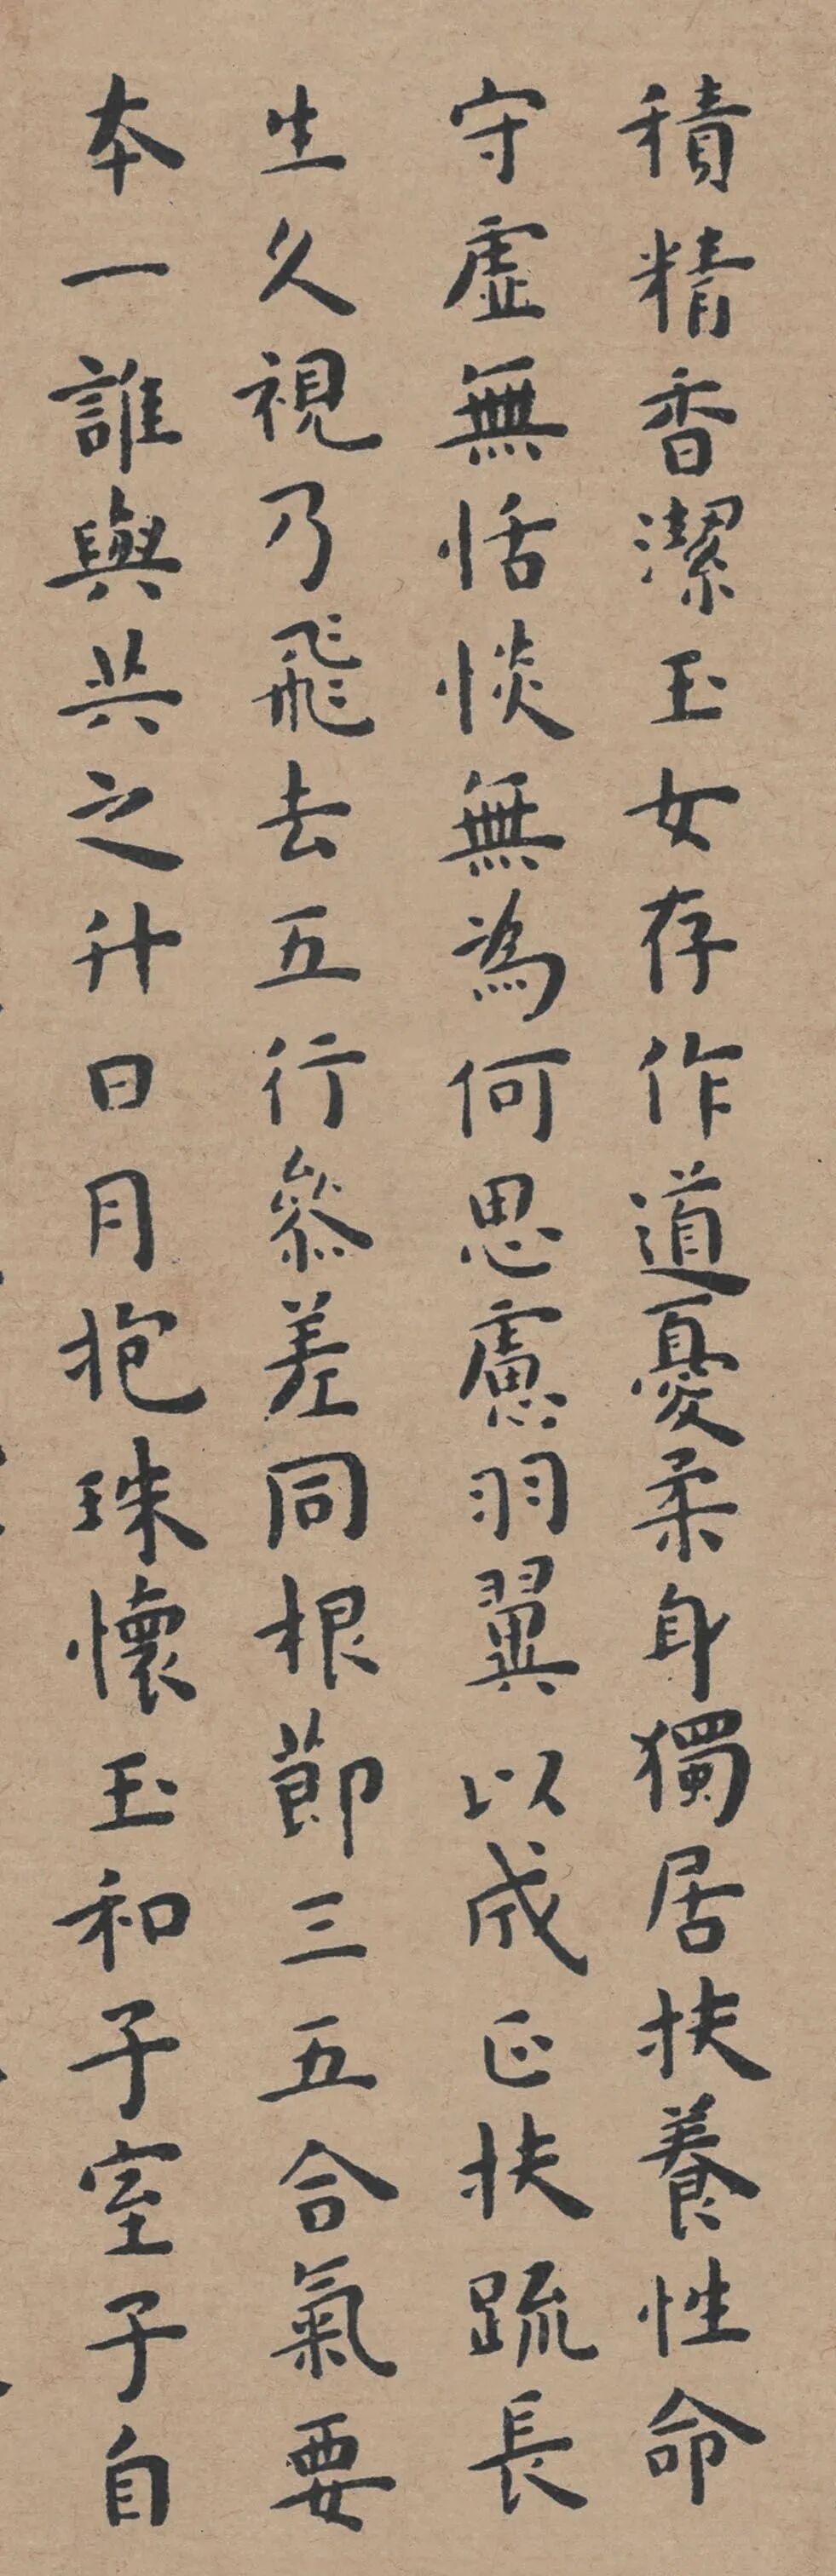 積精香潔玉女存作道憂柔身獨居扶養性命
守虛無恬惔無為何思慮羽翼以成正扶疏長
生久視乃飛去五行參差同根節三五合氣要
本一誰與共之升日月抱珠懷玉和子室子自